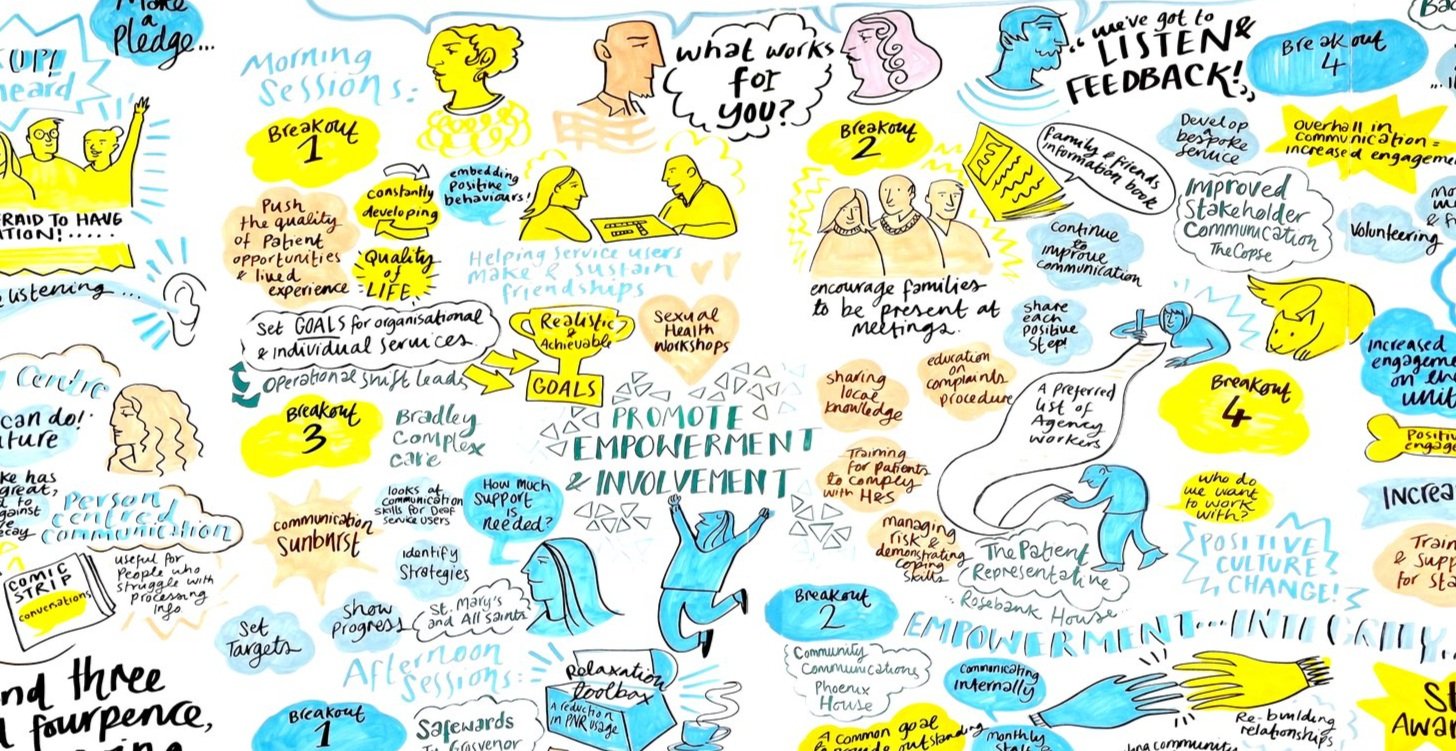 Make
a
Pledge...
UP!
heard
TO HAVE
listening...
Centre
can do!
Person
centred
communication
COMIC
STRIP
conversations
useful for
People who
struggle with
processing
info
three
fourpence,
Morning
Sessions:
what works
for
you?
"we've got to
LISTEN &
FEEDBACK!"
Breakout
1
Push
the quality
of Patient
opportunities
& lived
experience
constantly
developing
embedding
Positive
behaviours!
Quality
of
LIFE
Helping Service users
make & sustain
friendships
Set GOALS for organisational
& individual services.
Operational shift leads
Realistic
&
Achievable
GOALS
Sexual
Health
Workshops
Breakout
2
Family & friends
information book
encourage families
to be present at
meetings.
continue
to
improve
communication
share
each
positive
step!
sharing
local
knowledge
education
on
complaints
procedure
Training
for patients
to comply
with H&S
managing
risk &
demonstrating
coping
skills
Breakout
3
Bradley
Complex
care
communication
sunburst
looks at
communication
skills for Deaf
service users
How much
support
is
needed?
identify
Strategies
Set
Targets
show
Progress
St. Mary's
and All Saints
PROMOTE
EMPOWERMENT
& INVOLVEMENT
Breakout
4
Develop
a
bespoke
service
overhall in
communication =
increased
Improved
Stakeholder
Communication
The Copse
Volunteering
Increased
on
Breakout
4
A preferred
list of
Agency
workers
who do
we want
to work
with?
POSITIVE
CULTURE
CHANGE!
The Patient
Representative
Rosebank House
for
EMPOWERMENT...INTEGRITY..
Afternoon
Sessions:
Breakout
1
Safewards
Relaxation
toolbox
A reduction
in PNR usage
Breakout
2
Community
Communications
Phoenix
House
Communicating
internally
A common goal
to provide outstanding
monthly
Re-building
relationships
community